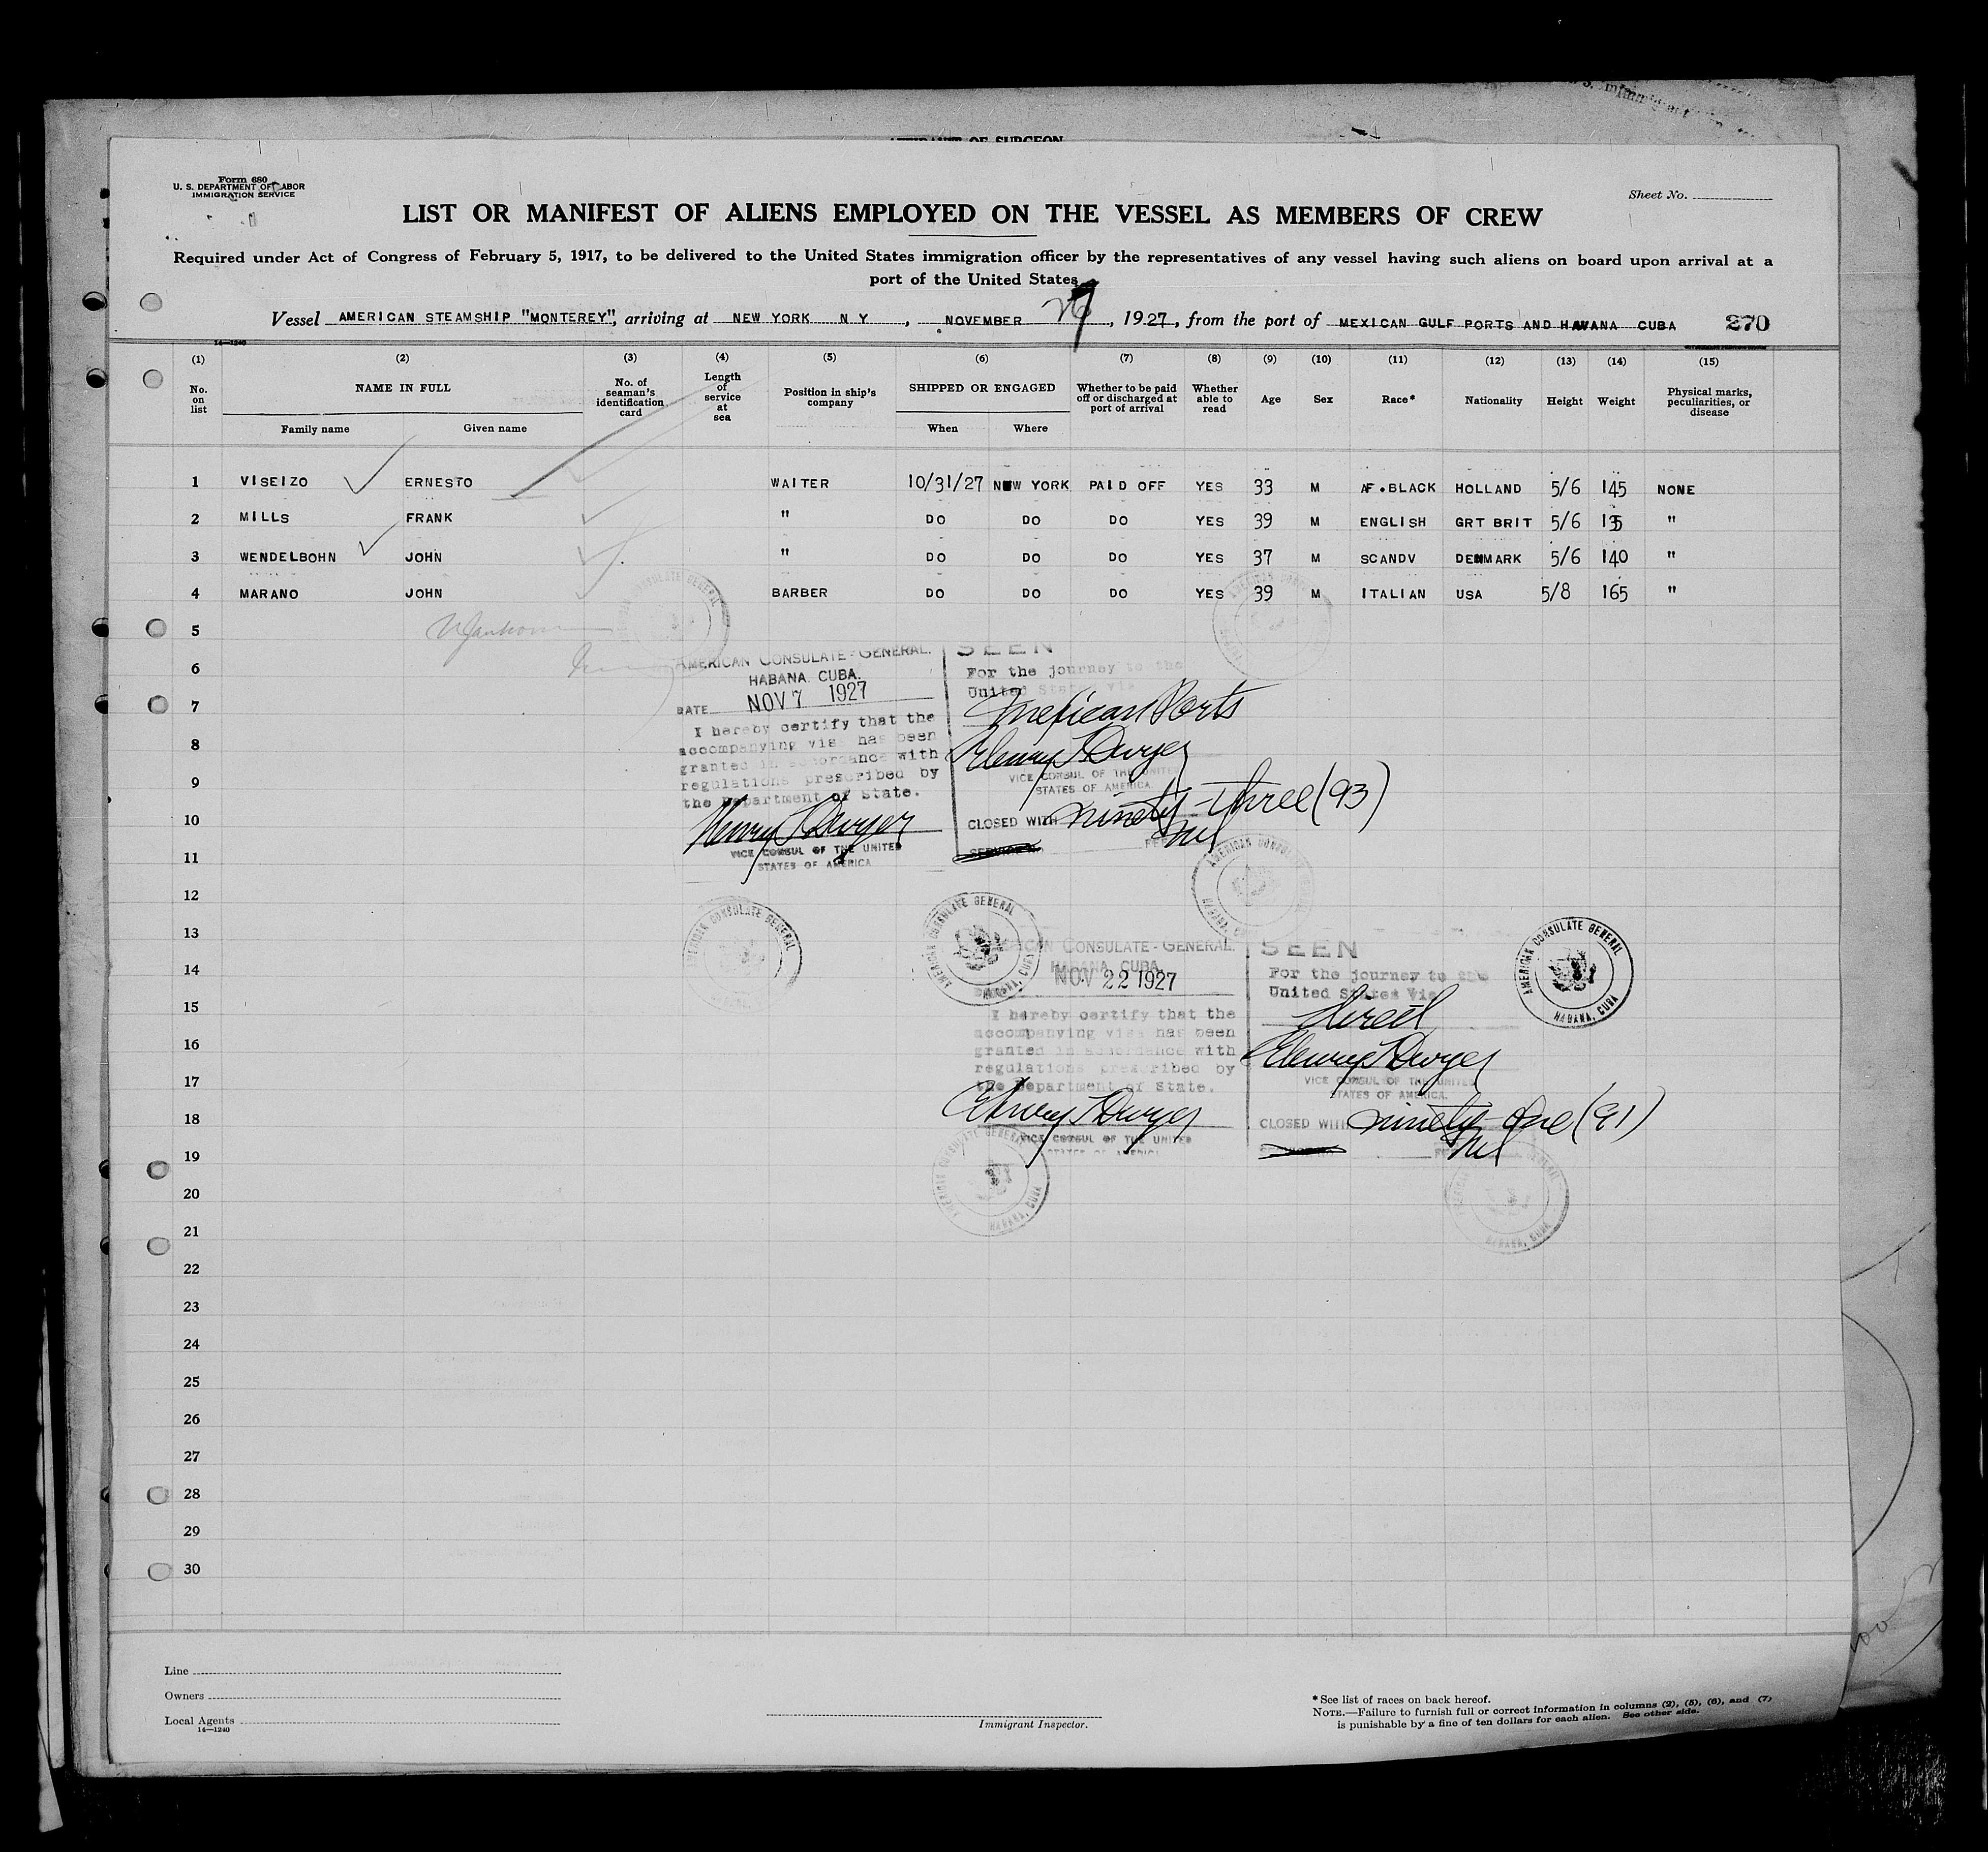 AFFIDAVIT OF SURGEON
Form 680
U. S. DEPARTMENT OF LABOR
IMMIGRATION SERVICE
Sheet No.
LIST OR MANIFEST OF ALIENS EMPLOYED ON THE VESSEL AS MEMBERS OF CREW
Required under Act of Congress of February 5, 1917, to be delivered to the United States immigration officer by the representatives of any vessel having such aliens on board upon arrival at a
port of the United States
Vessel AMERICAN STEAMSHIP "MONTEREY", arriving at NEW YORK N Y, NOVEMBER , 1927, from the port of MEXICAN GULF PORTS AND HAVANA CUBA 270
14—1240
(1) (2) (3) (4) (5) (6) (7) (8) (9) (10) (11) (12) (13) (14) (15)
No. on list NAME IN FULL No. of seaman's identification card Length of service at sea Position in ship's company SHIPPED OR ENGAGED Whether to be paid off or discharged at port of arrival Whether able to read Age Sex Race* Nationality Height Weight Physical marks, peculiarities, or disease
Family name Given name When Where
1 VISEIZO ERNESTO WAITER 10/31/27 NEW YORK PAID OFF YES 33 M AF.BLACK HOLLAND 5/6 145 NONE
2 MILLS FRANK " DO DO DO YES 39 M ENGLISH GRT BRIT 5/6 135 "
3 WENDELBOHN JOHN " DO DO DO YES 37 M SCANDV DENMARK 5/6 140 "
4 MARANO JOHN BARBER DO DO DO YES 39 M ITALIAN USA 5/8 165 "
5
6
7
8
9
10
11
12
13
14
15
16
17
18
19
20
21
22
23
24
25
26
27
28
29
30
AMERICAN CONSULATE-GENERAL.
HABANA, CUBA.
DATE NOV 7 1927
I hereby certify that the
accompanying visa has been
granted in accordance with
regulations prescribed by
the Department of State.
Henry T Dwyer
VICE CONSUL OF THE UNITED
STATES OF AMERICA
SEEN
For the journey to the
United States via
Mexican Ports
Henry T Dwyer
VICE CONSUL OF THE UNITED
STATES OF AMERICA.
CLOSED WITH ninety-three (93)
SERVICE No.
AMERICAN CONSULATE GENERAL
HABANA, CUBA
AMERICAN CONSULATE GENERAL
HABANA, CUBA
AMERICAN CONSULATE-GENERAL.
HABANA, CUBA
NOV 22 1927
I hereby certify that the
accompanying visa has been
granted in accordance with
regulations prescribed by
the Department of State.
Henry T Dwyer
VICE CONSUL OF THE UNITED
STATES OF AMERICA
SEEN
For the journey to the
United States Via
direct
Henry T Dwyer
VICE CONSUL OF THE UNITED
STATES OF AMERICA.
CLOSED WITH ninety-one (91)
AMERICAN CONSULATE GENERAL
HABANA, CUBA
Line
Owners
Local Agents
14—1240
Immigrant Inspector.
*See list of races on back hereof.
NOTE.—Failure to furnish full or correct information in columns (2), (5), (6), and (7)
is punishable by a fine of ten dollars for each alien. See other side.